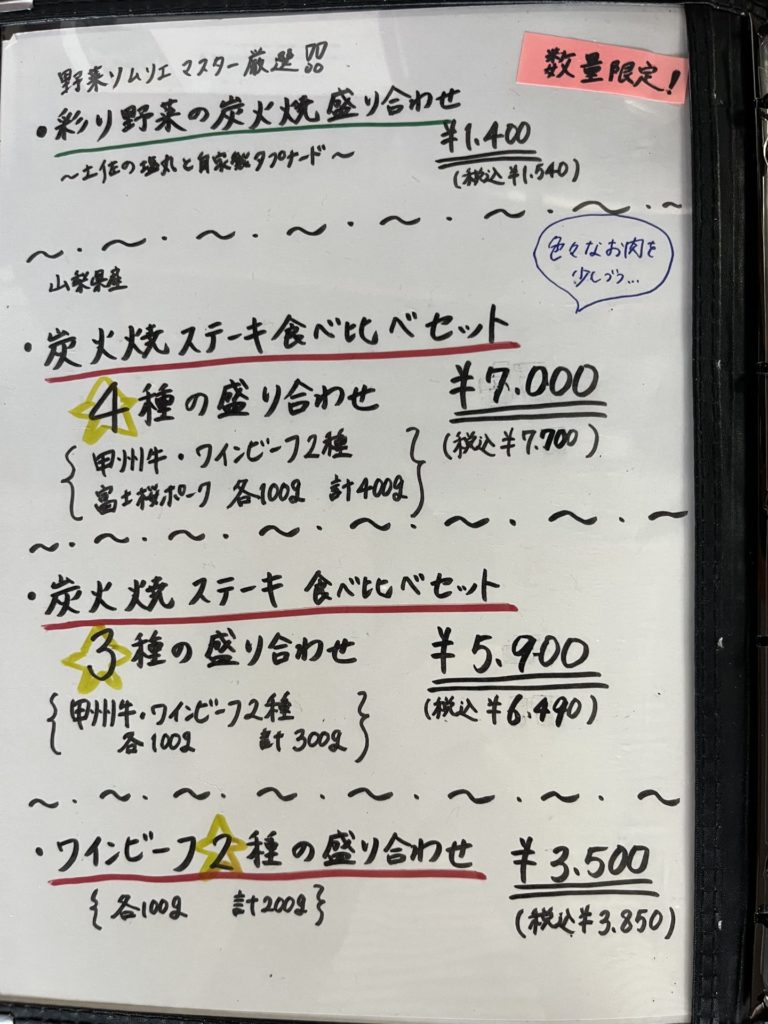 野菜ソムリエ マスター厳選!!
数量限定!
・彩り野菜の炭火焼盛り合わせ
¥1.400
～土佐の塩丸と自家製タプナード～
(税込¥1.540)
～・～・～・～・～・～・～・～・～
色々なお肉を
少しづつ…
山梨県産
・炭火焼ステーキ食べ比べセット
4種の盛り合わせ
¥7.000
(税込¥7.700)
{甲州牛・ワインビーフ2種
富士桜ポーク 各100g 計400g}
～・～・～・～・～・～・～・～・～
・炭火焼ステーキ 食べ比べセット
3種の盛り合わせ
¥5.900
(税込¥6.490)
{甲州牛・ワインビーフ2種
各100g 計300g}
～・～・～・～・～・～・～・～・～
・ワインビーフ2種の盛り合わせ
¥3.500
{各100g 計200g}
(税込¥3.850)